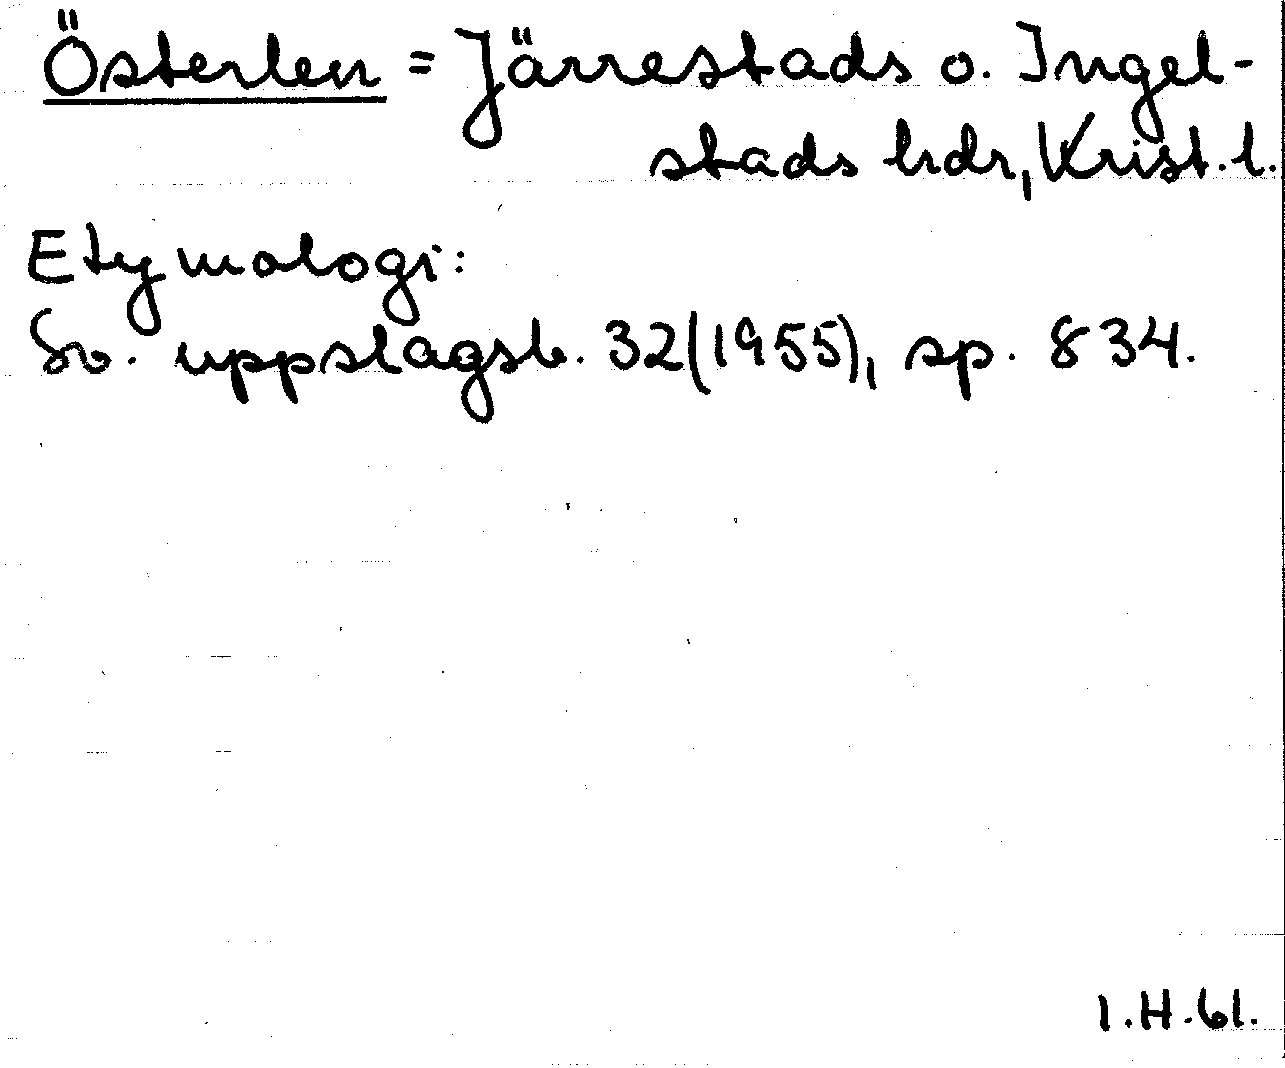 Österlen = Järrestads o. Ingel-
stads hdr, Krist. l.
Etymologi:
Sv. uppslagsb. 32(1955), sp. 834.
I.H.61.